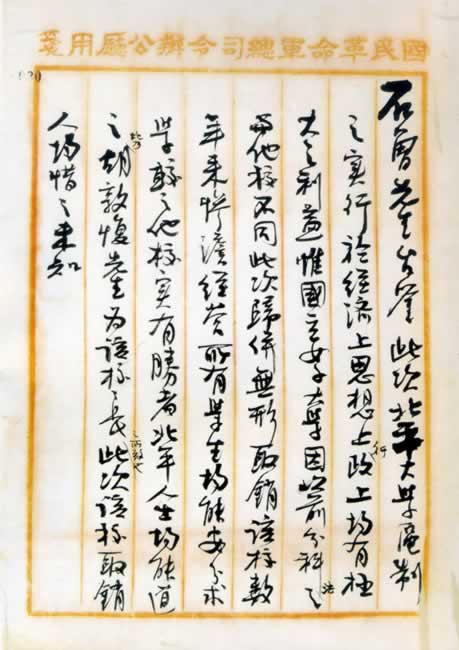 國民革命軍總司令辦公廳用箋
020
石曾先生台鉴 此次北平大學區制
之實行於經濟上思想上行政上均有極
大之利益惟國立女子大學因以前分科之法
與他校不同此次歸併無形取銷該校數
年來慘澹經營所有學生均能安分求
學較之他校實有勝者北平人士均能道
之胡敦復先生為該校之長之所致也此次該校取銷
人均惜之未知